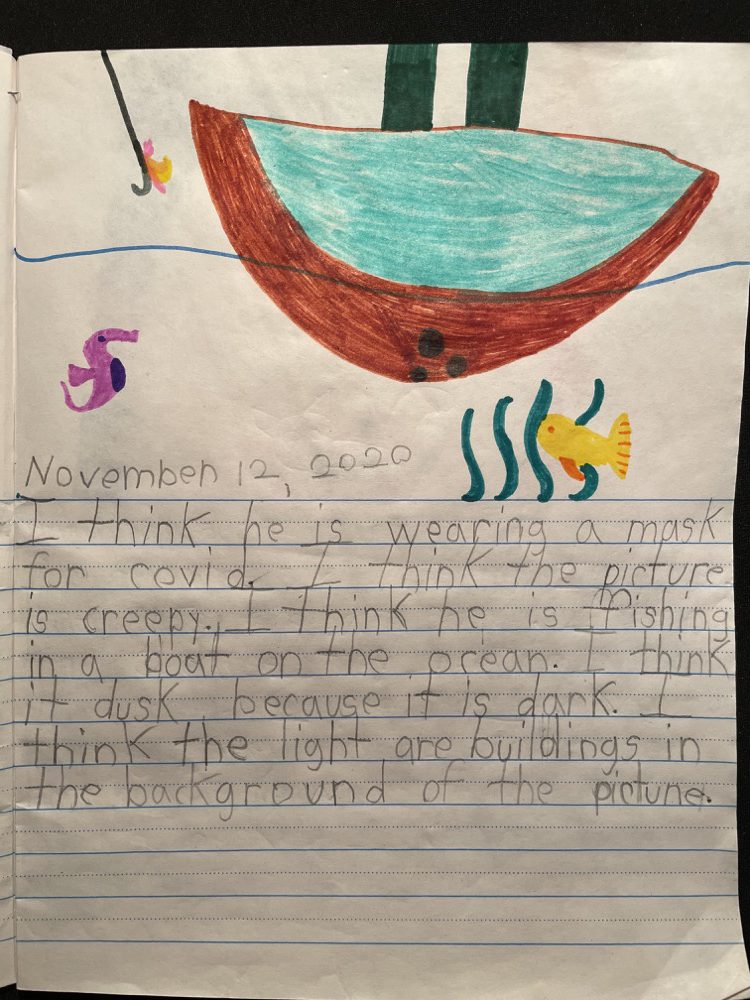 November 12, 2020
I think he is wearing a mask
for covid. I think the picture
is creepy. I think he is fishing
in a boat on the ocean. I think
it dusk because it is dark. I
think the light are buildings in
the background of the picture.